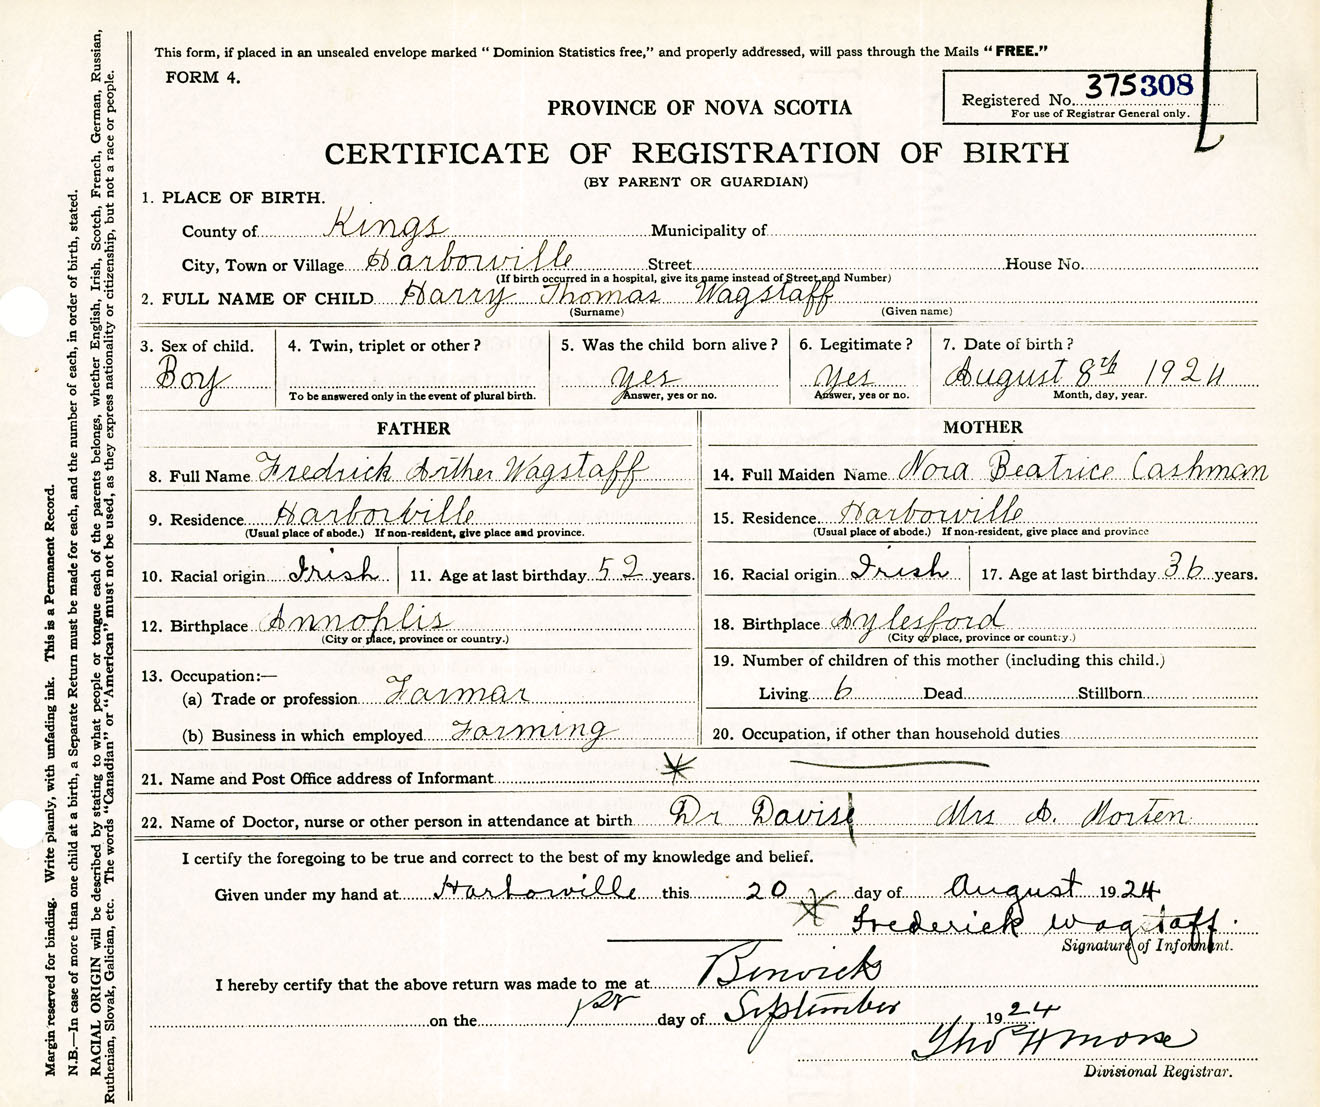 This form, if placed in an unsealed envelope marked "Dominion Statistics free," and properly addressed, will pass through the Mails "FREE."
FORM 4.
Registered No. 375308
For use of Registrar General only.
PROVINCE OF NOVA SCOTIA
CERTIFICATE OF REGISTRATION OF BIRTH
(BY PARENT OR GUARDIAN)
1. PLACE OF BIRTH.
County of Kings Municipality of
City, Town or Village Harborville Street House No.
(If birth occurred in a hospital, give its name instead of Street and Number)
2. FULL NAME OF CHILD Harry Thomas Wagstaff
(Surname) (Given name)
3. Sex of child. 4. Twin, triplet or other? 5. Was the child born alive? 6. Legitimate? 7. Date of birth?
Boy yes yes August 8th 1924
To be answered only in the event of plural birth. Answer, yes or no. Answer, yes or no. Month, day, year.
FATHER MOTHER
8. Full Name Fredrick Arther Wagstaff 14. Full Maiden Name Nora Beatrice Cashman
9. Residence Harborville 15. Residence Harborville
(Usual place of abode.) If non-resident, give place and province. (Usual place of abode.) If non-resident, give place and province
10. Racial origin Irish 11. Age at last birthday 52 years. 16. Racial origin Irish 17. Age at last birthday 36 years.
12. Birthplace Annoplis 18. Birthplace Aylesford
(City or place, province or country.) (City or place, province or country.)
13. Occupation:— 19. Number of children of this mother (including this child.)
(a) Trade or profession Farmar Living 6 Dead Stillborn
(b) Business in which employed Farming 20. Occupation, if other than household duties
21. Name and Post Office address of Informant
22. Name of Doctor, nurse or other person in attendance at birth Dr Davis Mrs A. Morten
I certify the foregoing to be true and correct to the best of my knowledge and belief.
Given under my hand at Harborville this 20 day of August 1924
Frederick Wagstaff.
Signature of Informant.
I hereby certify that the above return was made to me at Berwick
on the 1st day of September 1924
Thos H Morse
Divisional Registrar.
Margin reserved for binding. Write plainly, with unfading ink. This is a Permanent Record.
N.B.—In case of more than one child at a birth, a Separate Return must be made for each, and the number of each, in order of birth, stated.
RACIAL ORIGIN will be described by stating to what people or tongue each of the parents belongs, whether English, Irish, Scotch, French, German, Russian,
Ruthenian, Slovak, Galician, etc. The words "Canadian" or "American" must not be used, as they express nationality or citizenship, but not a race or people.